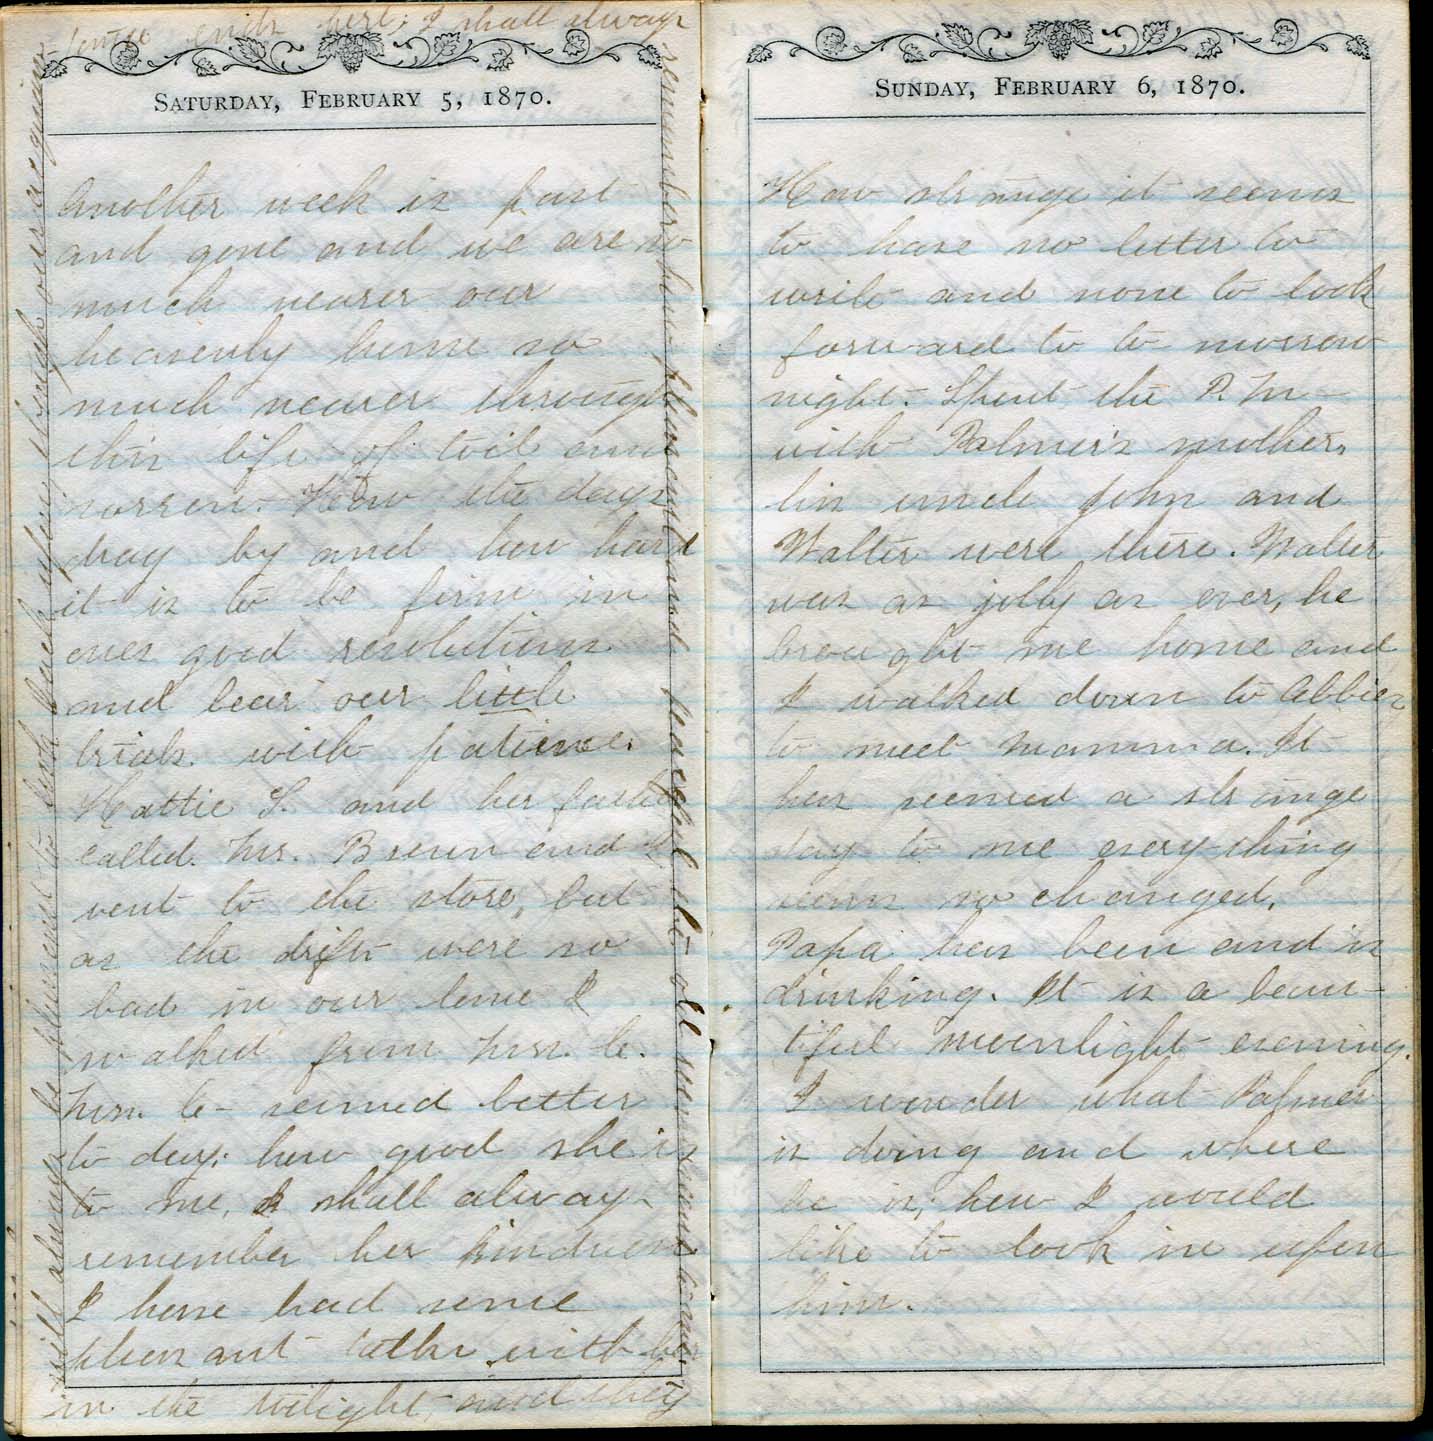 SATURDAY, FEBRUARY 5, 1870.
Another week is past
and gone and we are so
much nearer our
heavenly home so
much nearer through
this life of toil and
sorrow. How the days
drag by and how hard
it is to be firm in
ones good resolutions
and bear our little
trials with patience.
Hattie S. and her father
called. Mrs. Brown and I
went to the store, but
as the drifts were so
bad in our lane I
walked from Mrs. C.
Mrs. C- seemed better
to day; how good she is
to me, I shall always
remember her kindness
I have had some
pleasant talks with her
in the twilight, and they
will always be pleasant to look back upon, though our acquain-
tance ends here; I shall always
remember how pleasant and peaceful the old
SUNDAY, FEBRUARY 6, 1870.
How strange it seems
to have no letter to
write and none to look
forward to to morrow
night. Spent the P.M-
with Palmer's mother,
his uncle John and
Walter were there. Walter
was as jolly as ever, he
brought me home and
I walked down to Abbies
to meet Mamma. It
has seemed a strange
day to me everything
seems so changed.
Papa has been and is
drinking. It is a beau-
tiful moonlight evening.
I wonder what Palmer
is doing and where
he is; how I would
like to look in upon
him.